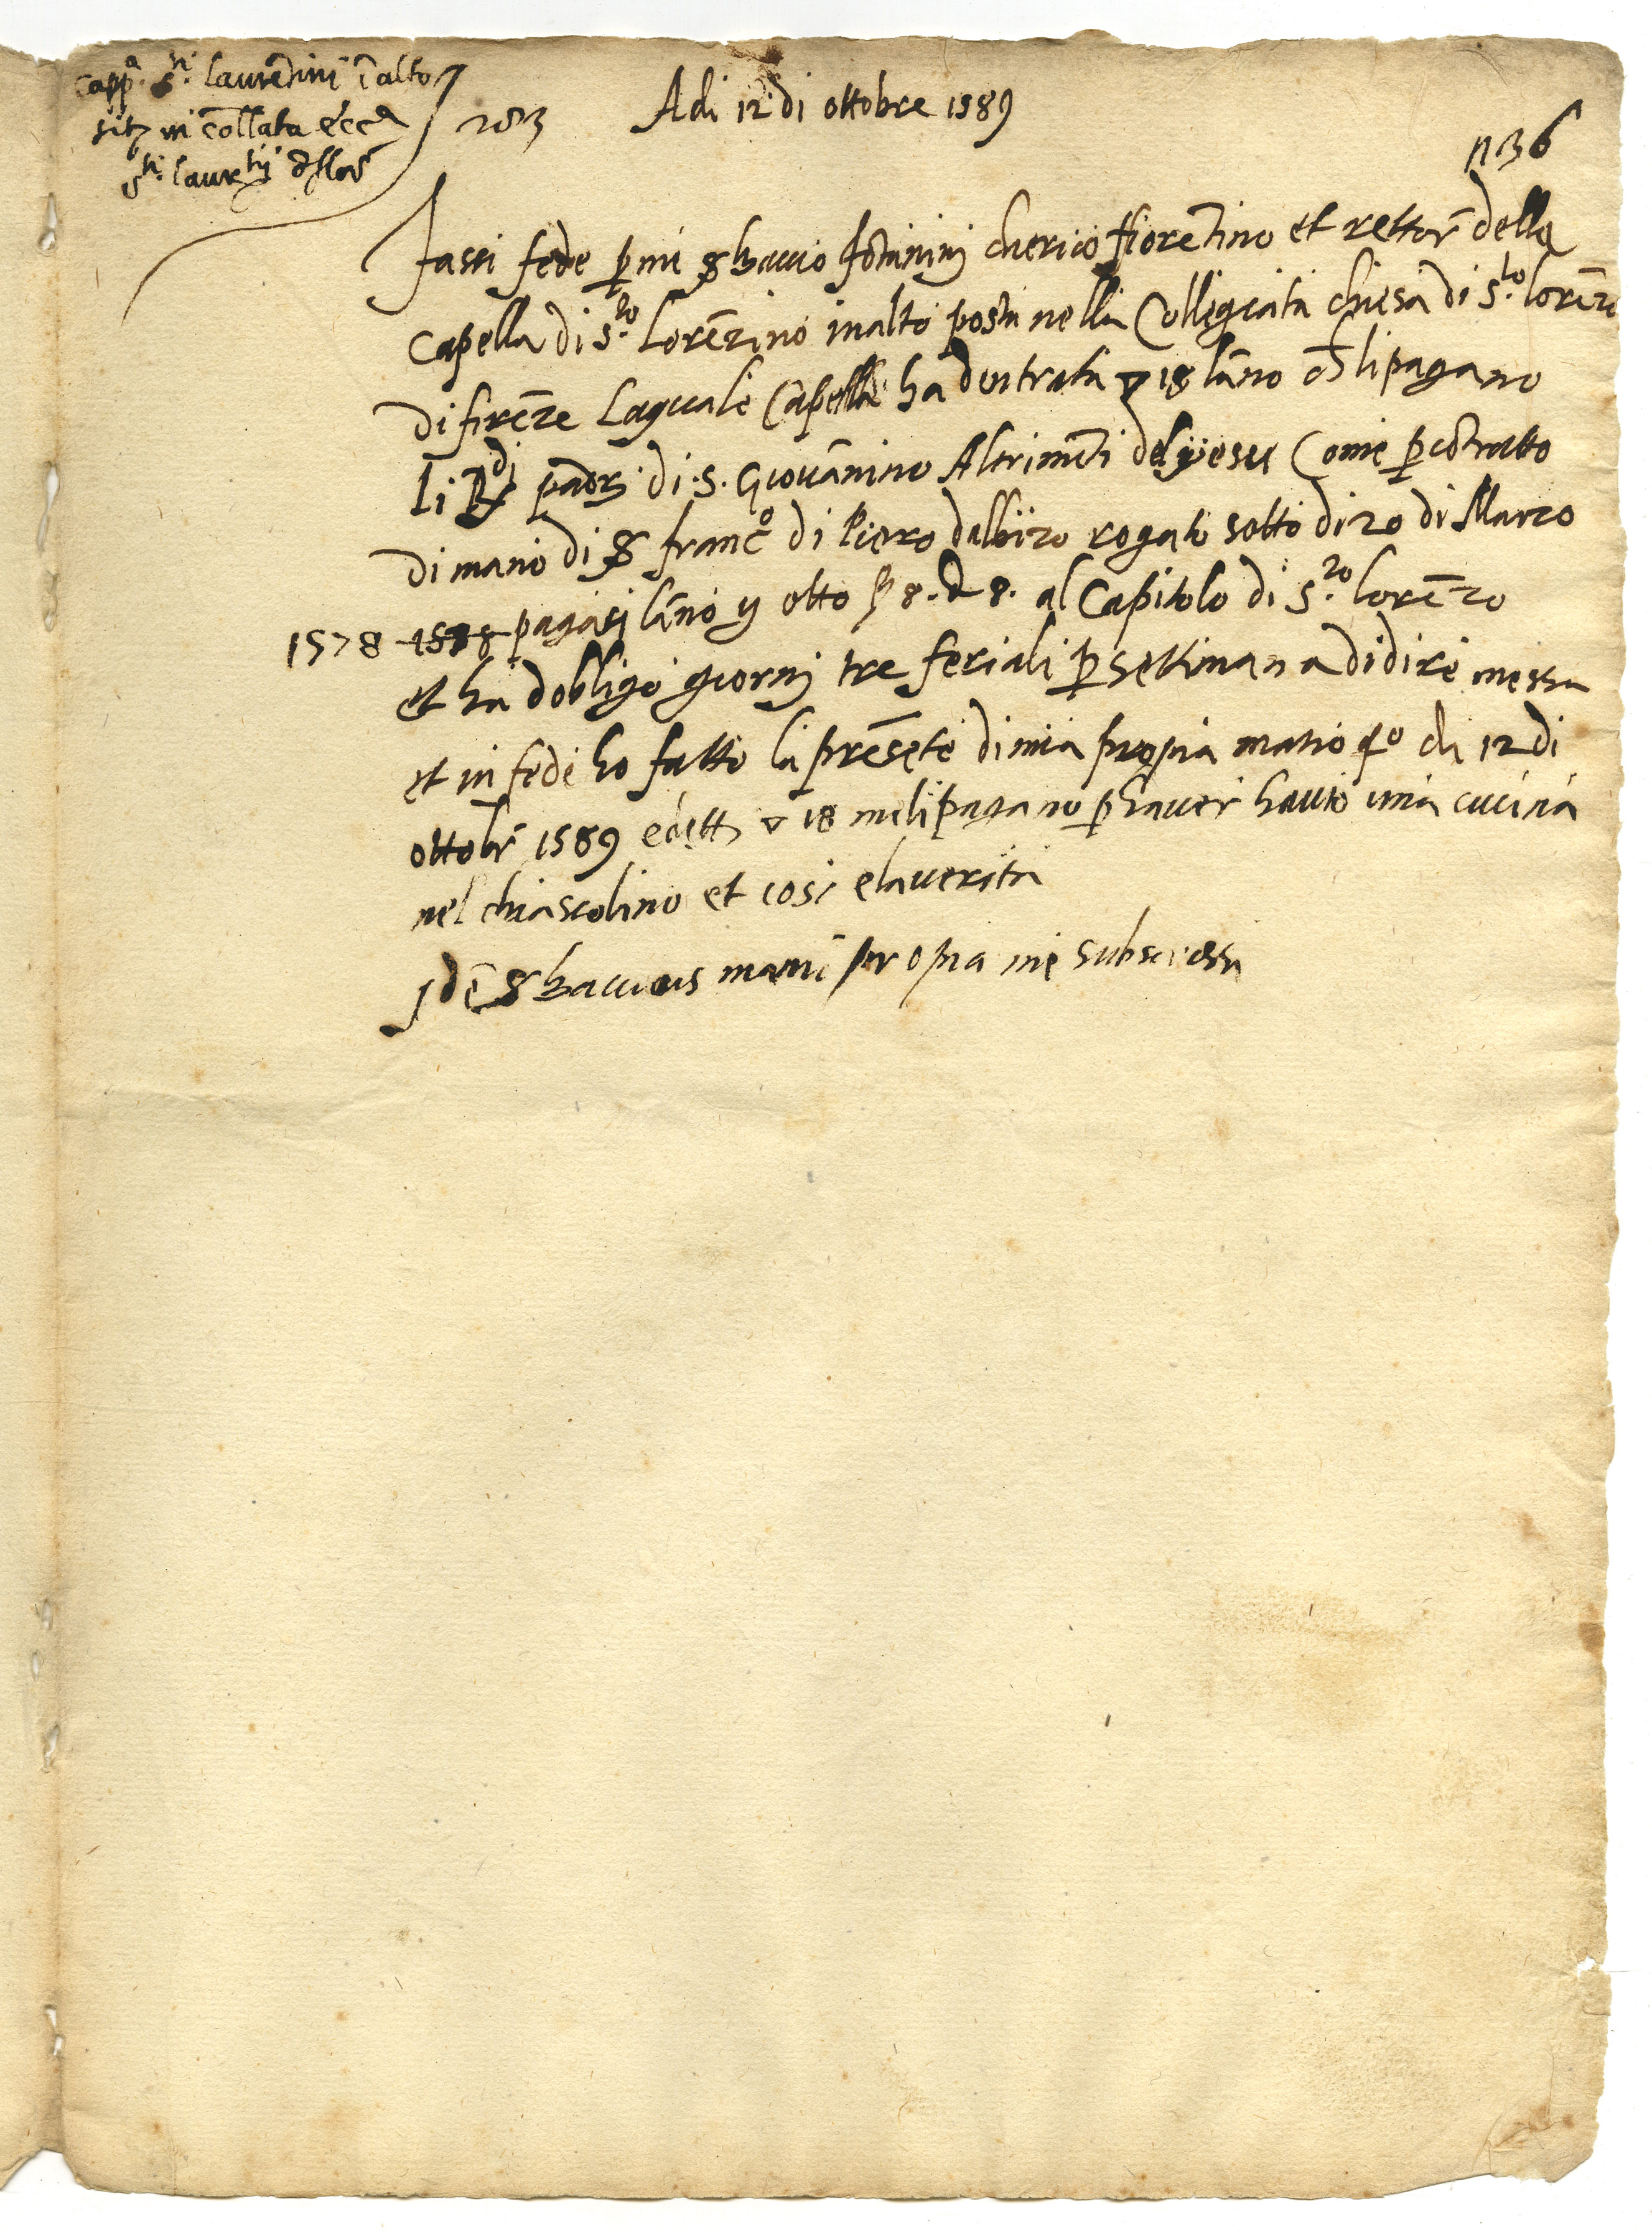 capp.a s.ti laurētini ī alto
sitę in collata ecc.a
s.ti laur.tij d flor.
203
Adi 12 di ottobre 1589
n 36
Fassi fede p me baccio cherico fiorētino et rettor della
capella di s.to Lorēzino in alto posta nella Collegiata chiesa di s.to lorēzo
di firēze laquale Capella ha dentrata 18 lāno li pagano
li R.di padri di .S. Giovānino Altrimēti del yesu Come p cōtratto
di mano di franc.o di Piero dalbizo rogato sotto di 20 di Marzo
1578 1588 pagasi lāno otto 8. 8. al Capitolo di s.to lorēzo
et ha dobligo giorni tre feriali p settimana di dire messa
et in fede ho fatto la presēte di mia propia mano di 12 di
ottobr 1589 e detti 18 me li pagano p haver hauto una cucina
nel chiascolino et cosi e la verita
Idē baccius manu propia me subscrissi